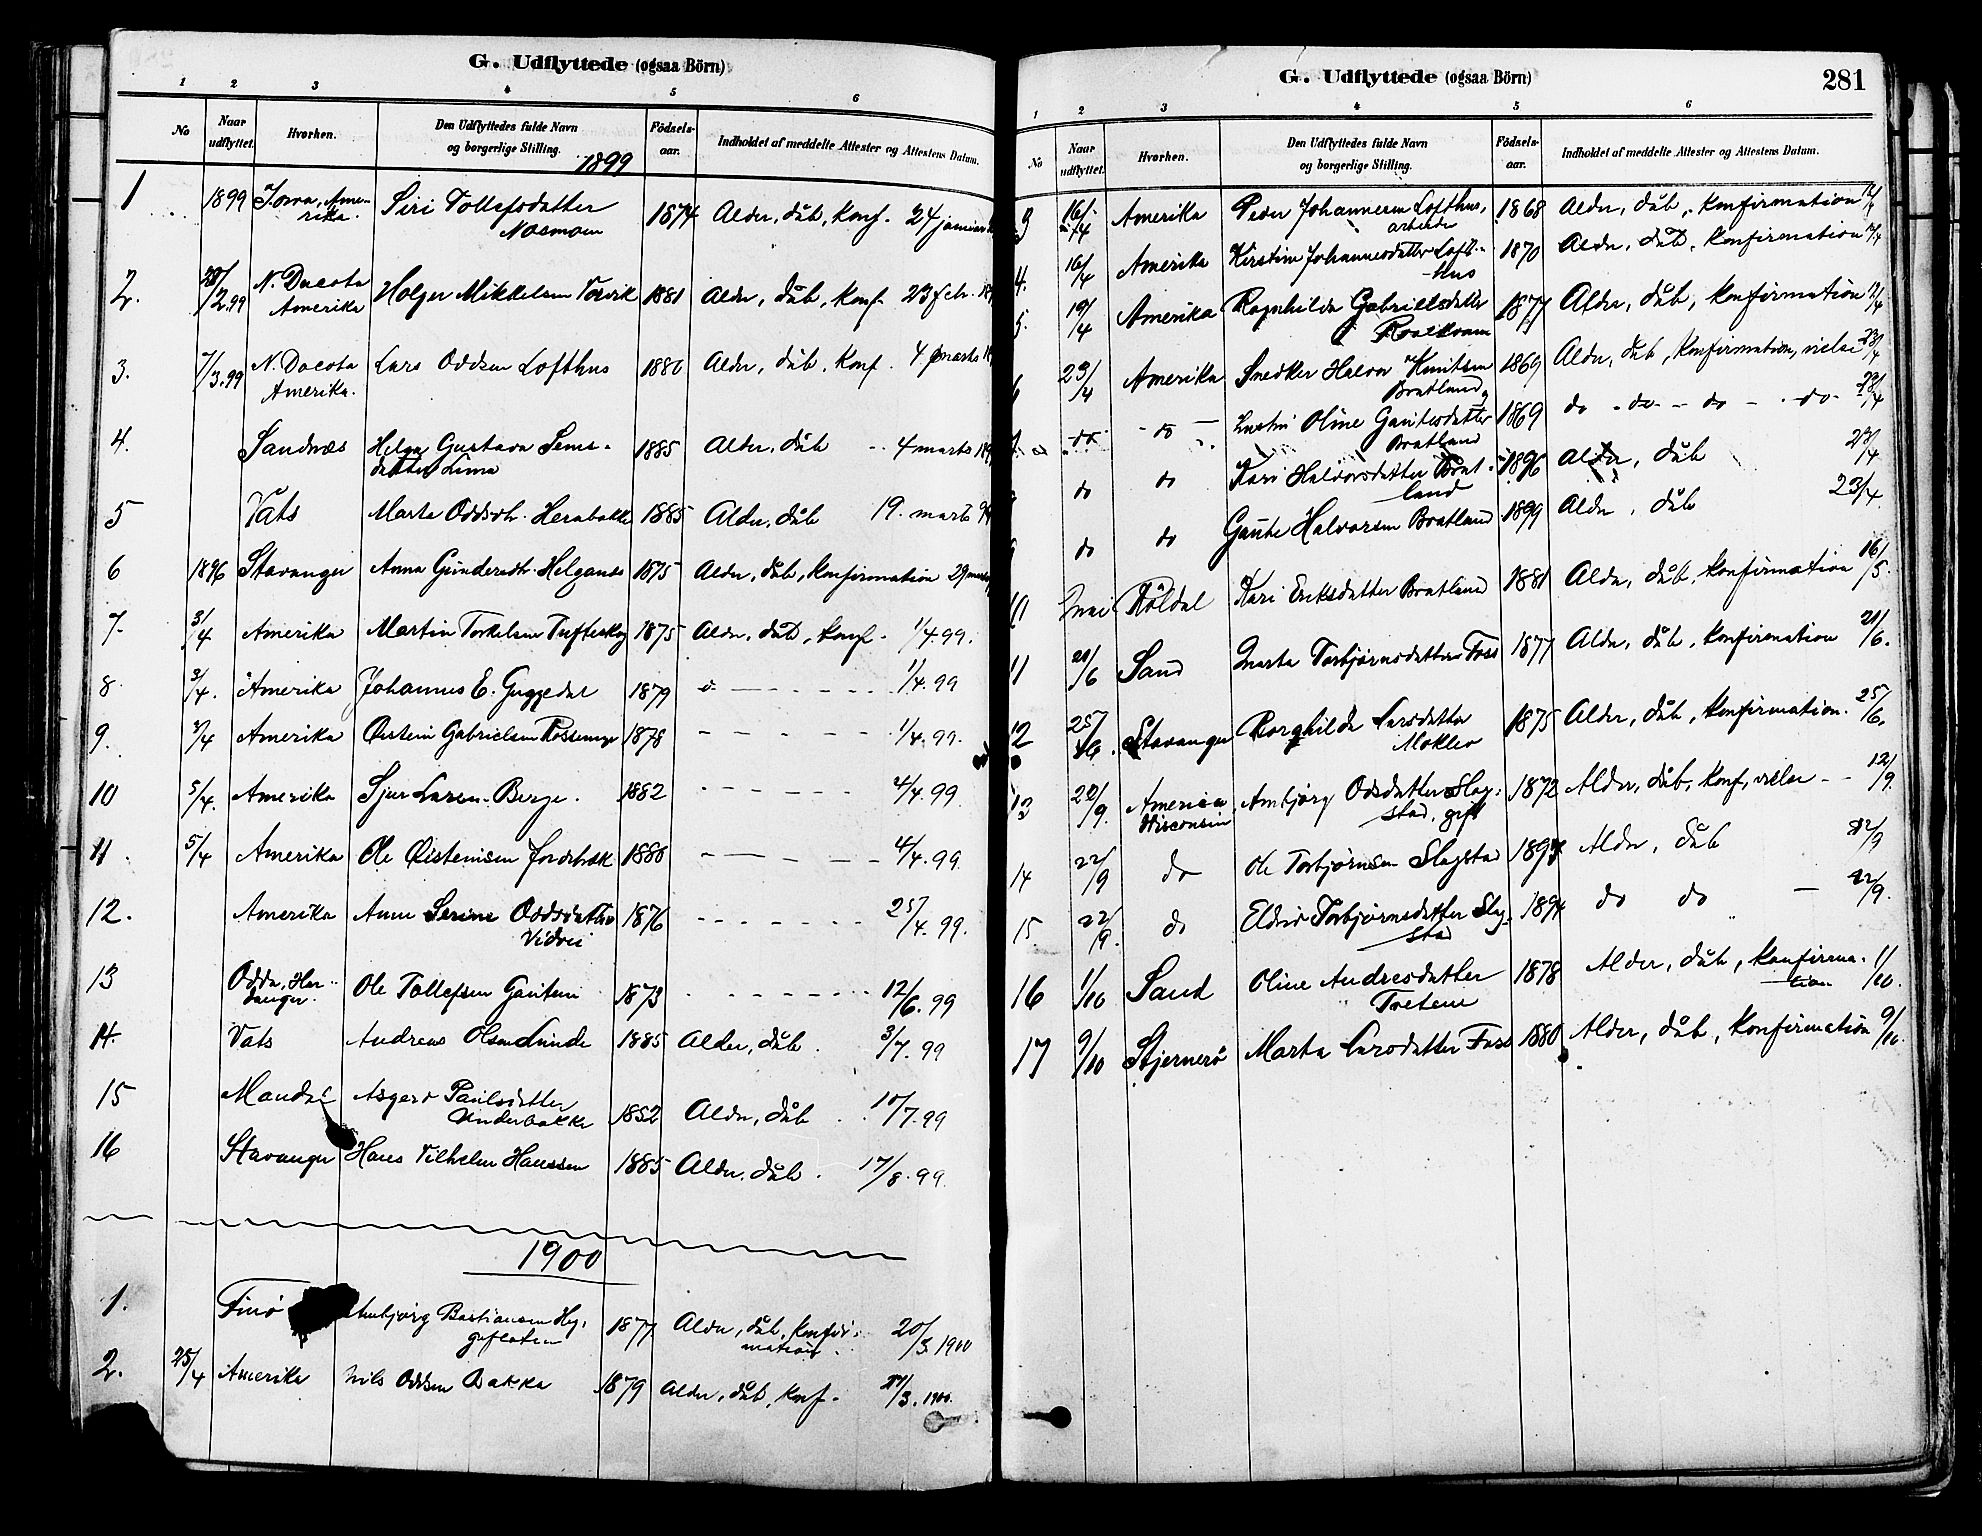 G. Udflyttede (ogsaa Börn)
1 2 3 4 5 6
No Naar udflyttet. Hvorhen. Den Udflyttedes fulde Navn og borgerlige Stilling. Födsels-aar. Indholdet af meddelte Attester og Attestens Datum.
1899
1 1899 Iowa, Ame- Siri Tollefsdatter 1874 Alder, dåb, konf. 24 januar
rika.
2. 28/2.99 N. Dacota Holger Mikkelsen 1881 Alder, dåb, konf. 23 febr.
Amerika
3. 7/3.99 N. Dacota Lars Oddsen Lofthus 1880 Alder, dåb, konf. 4 marts
Amerika.
4. Sandnæs Helga Gustava 1885 Alder, dåb 4 marts
datter Lima
5 Vats Marta Oddsdtr. Herabakke 1885 Alder, dåb 19. marts
6 1896 Stavanger Anna Gundersdtr. Helganes 1875 Alder, dåb, konfirmation 29 marts
7. 3/4 Amerika Martin Torkelsen Tufteskog 1875 Alder, dåb, konf. 1/4.99.
8. 3/4. Amerika Johannes E. Guggedal 1879 1/4.99
9. 4/4 Amerika Østein Gabrielsen 1878 1/4.99.
10 5/4. Amerika Sjur Larsen Berge. 1882 4/4.99.
11. 5/4 Amerika Ole Øisteinsen 1880 4/4.99.
12. Amerika Anne Serine Oddsdatter 1876 25/4.99.
13 Odda, Har- Ole Tollefsen 1873 12/6.99
danger.
14. Vats Andreas Olsen Lunde 1885 Alder, dåb. 3/7.99
15 Mandal Asgerd Paulsdatter 1852 Alder, dåb 10/7.99
Underbakke
16 Stavanger Hans Vilhelm Hanssen 1885 Alder, dåb. 17/8.99.
1900
1. Finö Ambjørg Bastiansen 1877 Alder, dåb, konfir- 20/3.1900
mation.
2. 25/4 Amerika Nils Oddsen Bakka 1879 Alder, dåb, konf. 27/3.1900.
G. Udflyttede (ogsaa Börn)
281
1 2 3 4 5 6
No Naar udflyttet. Hvorhen. Den Udflyttedes fulde Navn og borgerlige Stilling. Födsels-aar. Indholdet af meddelte Attester og Attestens Datum.
3 16/4 Amerika Peder Johannesen Lofthus, 1868 Alder, dåb, konfirmation
arbeider
4. 16/4 Amerika Kirstine Johannesdatter Loft- 1870 Alder, dåb, konfirmation
hus
5. 19/4 Amerika Ragnhilda Gabrielsdatter 1877 Alder, dåb, konfirmation
Roalkvam
6 23/4 Amerika Snedker Halvor Knutsen 1869 Alder, dåb, konfirmation, vielse 23/4
Bratland
do do Oline Gautesdatter 1869 do do do do 23/4
Bratland
do do Kari Halvorsdatter Brat- 1896 Alder, dåb 23/4
land
do do Gaute Halvorsen Bratland 1899 Alder, dåb 23/4.
10 mai Röldal Kari Eriksdatter Bratland 1881 Alder, dåb, konfirmation 16/5.
11 21/6 Sand Marta Torbjørnsdatter Foss 1877 Alder, dåb, konfirmation 21/6.
12 25/6. Stavanger Borghilda Larsdatter 1875 Alder, dåb, konfirmation. 25/6.
Mokleiv
13 22/9. America Ambjørg Odsdatter Slag- 1872 Alder, dåb, konf, vielse 12/9.
Wisconsin stad, gift
14 22/9 do Ole Torbjørnsen Slagstad Alder, dåb 12/9
15. 22/9. do Eldrid Torbjørnsdatter Slag- 1894 do do 12/9.
stad
16 1/10 Sand Oline Andresdatter 1878 Alder, dåb, konfirma- 1/10.
Tvetene tion
17 9/10 Stjernerö Marta Larsdatter Foss 1880 Alder, dåb, konfirmation 9/10.